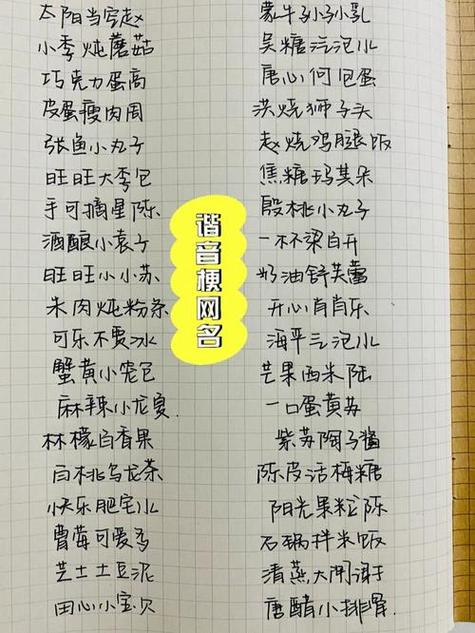 太阳当空赵
小季炖蘑菇
巧克力蛋高
皮蛋瘦肉周
张鱼小丸子
旺旺大李包
手可摘星陈
酒酿小袁子
旺旺小小苏
朱肉炖粉条
可乐不要冰
蟹黄小笼包
麻辣小龙夏
林檬百香果
白桃乌龙茶
快乐肥宅水
曹莓可爱多
芝士土豆泥
田心小宝贝
谐音梗网名
蒙牛孙小乳
吴糖汽泡水
唐心何包蛋
洪烧狮子头
赵烧鸡腿饭
焦糖玛其朵
殷桃小丸子
一杯梁白开
奶油舒芙蕾
开心肖肖乐
海平汽泡水
芒果西米陆
一口蛋黄苏
紫苏陶子酱
陈皮话梅糖
阳光果粒陈
石锅拌米饭
清燕大闸谢
唐醋小排骨